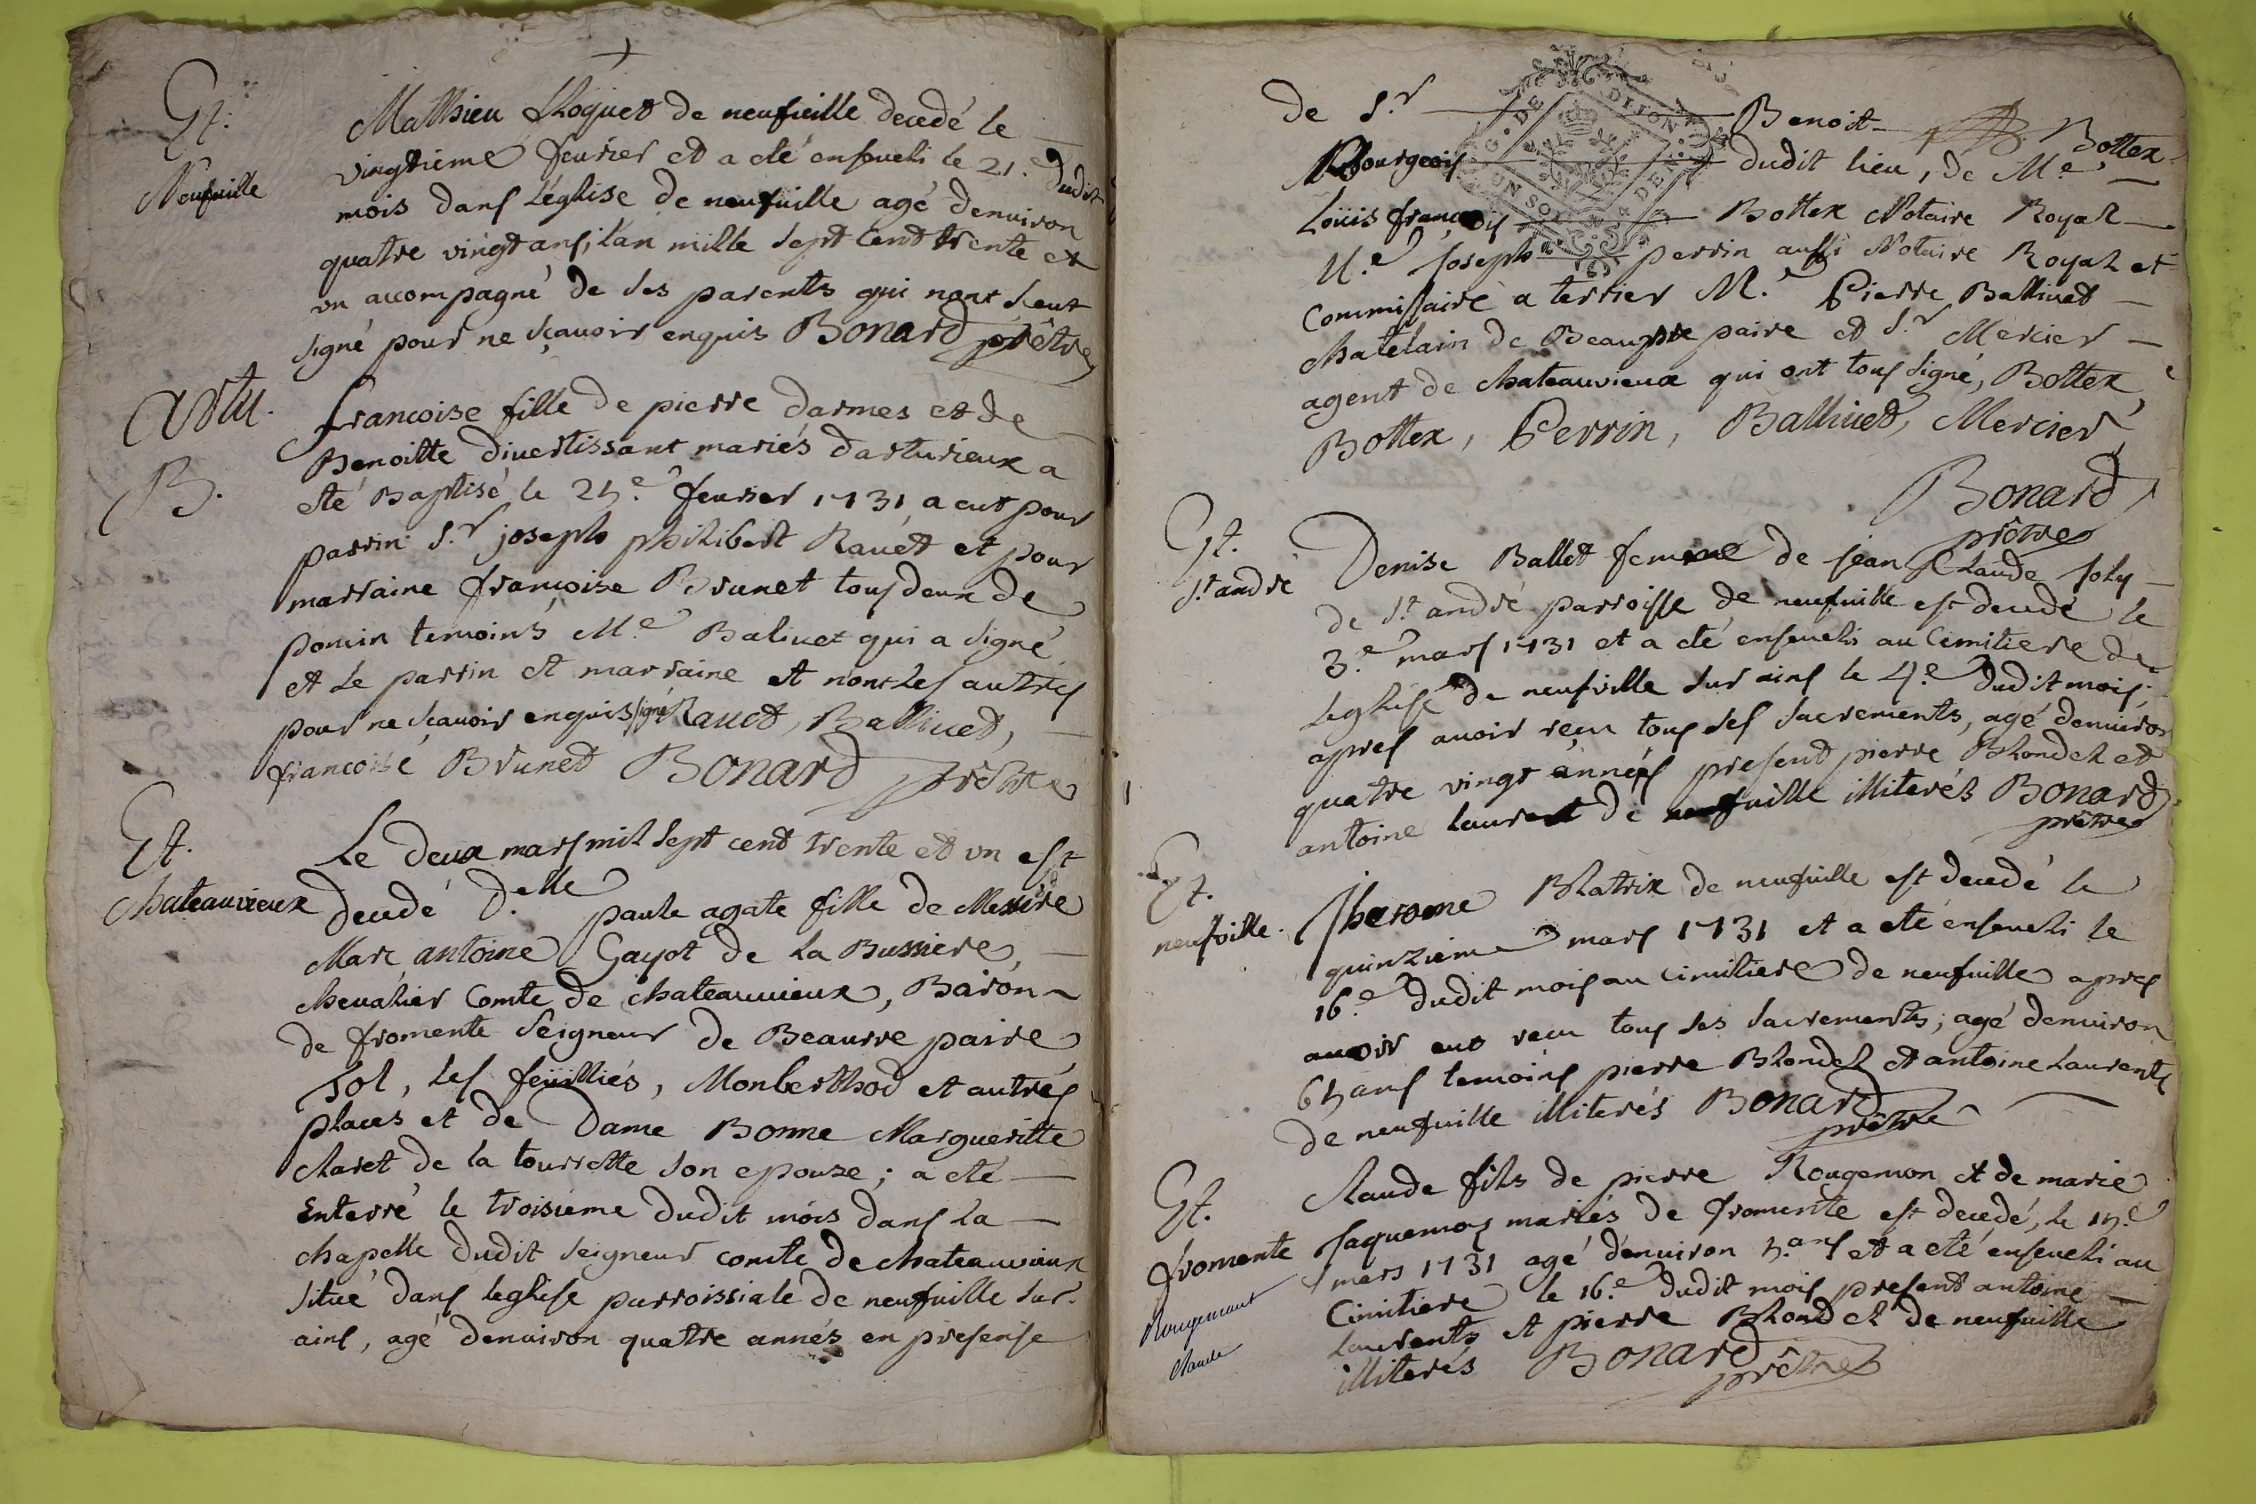 Et.
Neufville
Mathieu Choquet de neufville decedé le
vingtieme fevrier et a eté enseveli le 21.e dudit
mois dans l'eglise de neufville agé denviron
quatre vingt ans, l'an mille sept cent trente et
un accompagné de ses parents qui nont sceut
signé pour ne sçavoir enquis Bonard prêtre
Artu.
B.
francoise fille de pierre darmes et de
Benoitte divertissant mariés darturieux a
eté Baptisé le 25.e fevrier 1731 a eut pour
parrin S.r joseph philibert Ravet et pour
marraine francoise Brunet tous deux de
poncin temoins M.e Balivet qui a signé
et le parrin et marraine et non les autres
pour ne scavoir enquis signé Ravet, Ballivet,
francoise Brunet Bonard prêtre
Et.
chateauvieux
Le deux mars mil sept cent trente et un est
decedé D.elle paule agate fille de Messire
Marc antoine Gayot de la Bussiere,
chevalier Comte de chateauvieux, Baron
de fromente Seigneur de Beaurre paire
Sol, les feüilliés, Monberthod et autres
places et de Dame Bonne Margueritte
claret de la tourrette son epouze; a eté
Enterré le troisieme dudit mois dans la
chapelle dudit seigneur comte de chateauvieux
situé dans leglise parroissiale de neufville sur
ains, agé denviron quatre annés en presense
de S.r Benoit Bottex
Bourgeois dudit lieu, de M.e
Loüis françois Bottex Notaire Royal
M.e Joseph perrin aussi Notaire Royal et
Commissaire a terrier M.e Pierre Ballivet
chatelain de Beaurre paire et S.r Mercier
agent de chateauvieux qui ont tous signé, Bottex,
Bottex, Perrin, Ballivet, Mercier,
Bonard
prêtre
G. DE DIJON
Et.
S.t andré
Denise Ballet femme de jean Claude Joly
de S.t andré parroisse de neufville est decedé le
3.e mars 1731 et a eté enseveli au Cimitiere de
leglise de neufville sur ains le 4.e dudit mois,
apres avoir reçu tous ses sacrements, agé denviron
quatre vingt années present pierre Blondel et
antoine laurent de neufville illiterés Bonard
prêtre
Et.
neufville.
Jherome Blatrix de neufville est decedé le
quinzieme mars 1731 et a eté enseveli le
16.e dudit mois au cimitiere de neufville apres
avoir eut recu tous ses sacrements; agé denviron
65 ans temoins pierre Blondel et antoine Laurents
de neufville illiterés Bonard
prêtre
Et.
fromente
Rougemont
Claude
Claude fils de pierre Rougemon et de marie
Jaquemoz mariés de fromente est decedé, le 15.e
mars 1731 agé denviron 5. ans et a eté enseveli au
Cimitiere le 16.e dudit mois present antoine
Laurents et pierre Blondel de neufville
illiterés Bonard prêtre